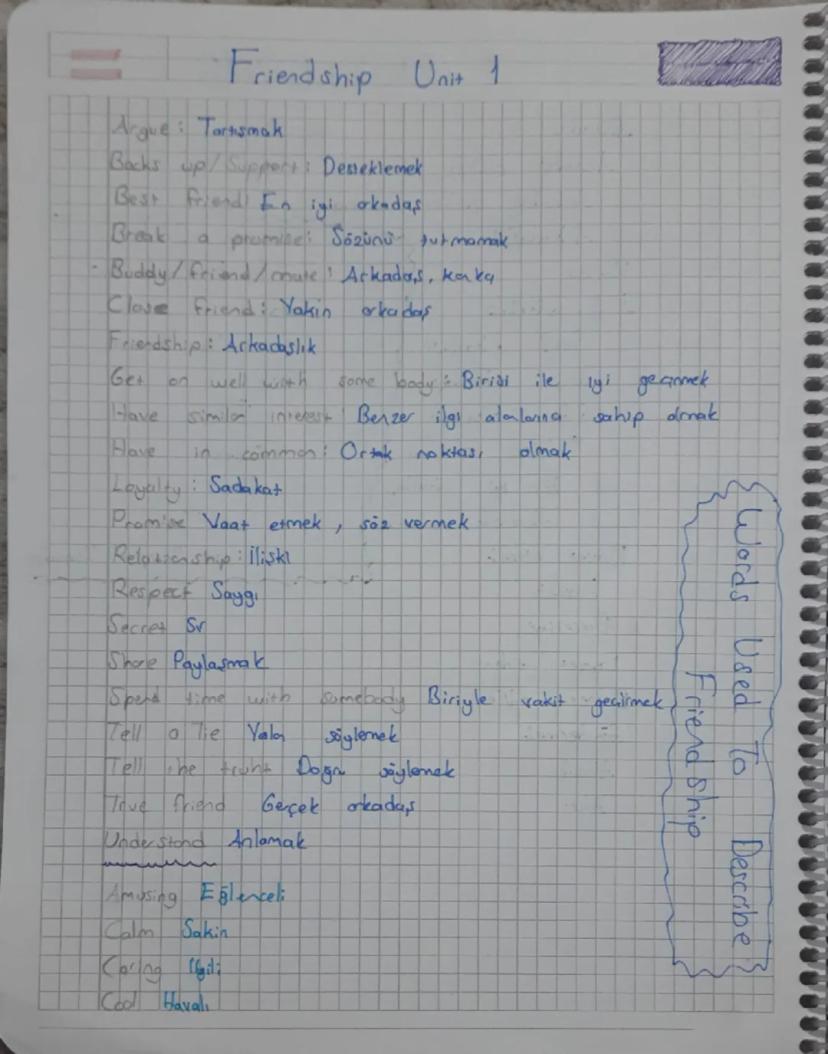 Friendship Unit 1
Argue: Tartısmak
Backs up/Support: Desteklemek
Best friend: En iyi arkadaş
Break a promise: Sözünü tutmamak
Buddy/friend/mate: Arkadaş, kanka
Close friend: Yakin arkadaş
Friendship: Arkadaslık
Get on well with some body: Birisi ile iyi geçinmek
Have similar interest Benzer ilgi alanlarına sahip olmak
Have in common: Ortak noktası olmak
Loyalty: Sadakat
Promise Vaat etmek, söz vermek
Relationship: İliski
Respect Saygı
Secret Sır
Share Paylasmak
Spend time with somebody Biriyle vakit geçirmek
Tell a lie Yalan söylemek
Tell the truht Dogru söylemek
True friend Gerçek arkadaş
Understand Anlamak
Amusing Eğlenceli
Calm Sakin
Caring İlgili
Cool Havalı
Words Used To Describe
Friendship